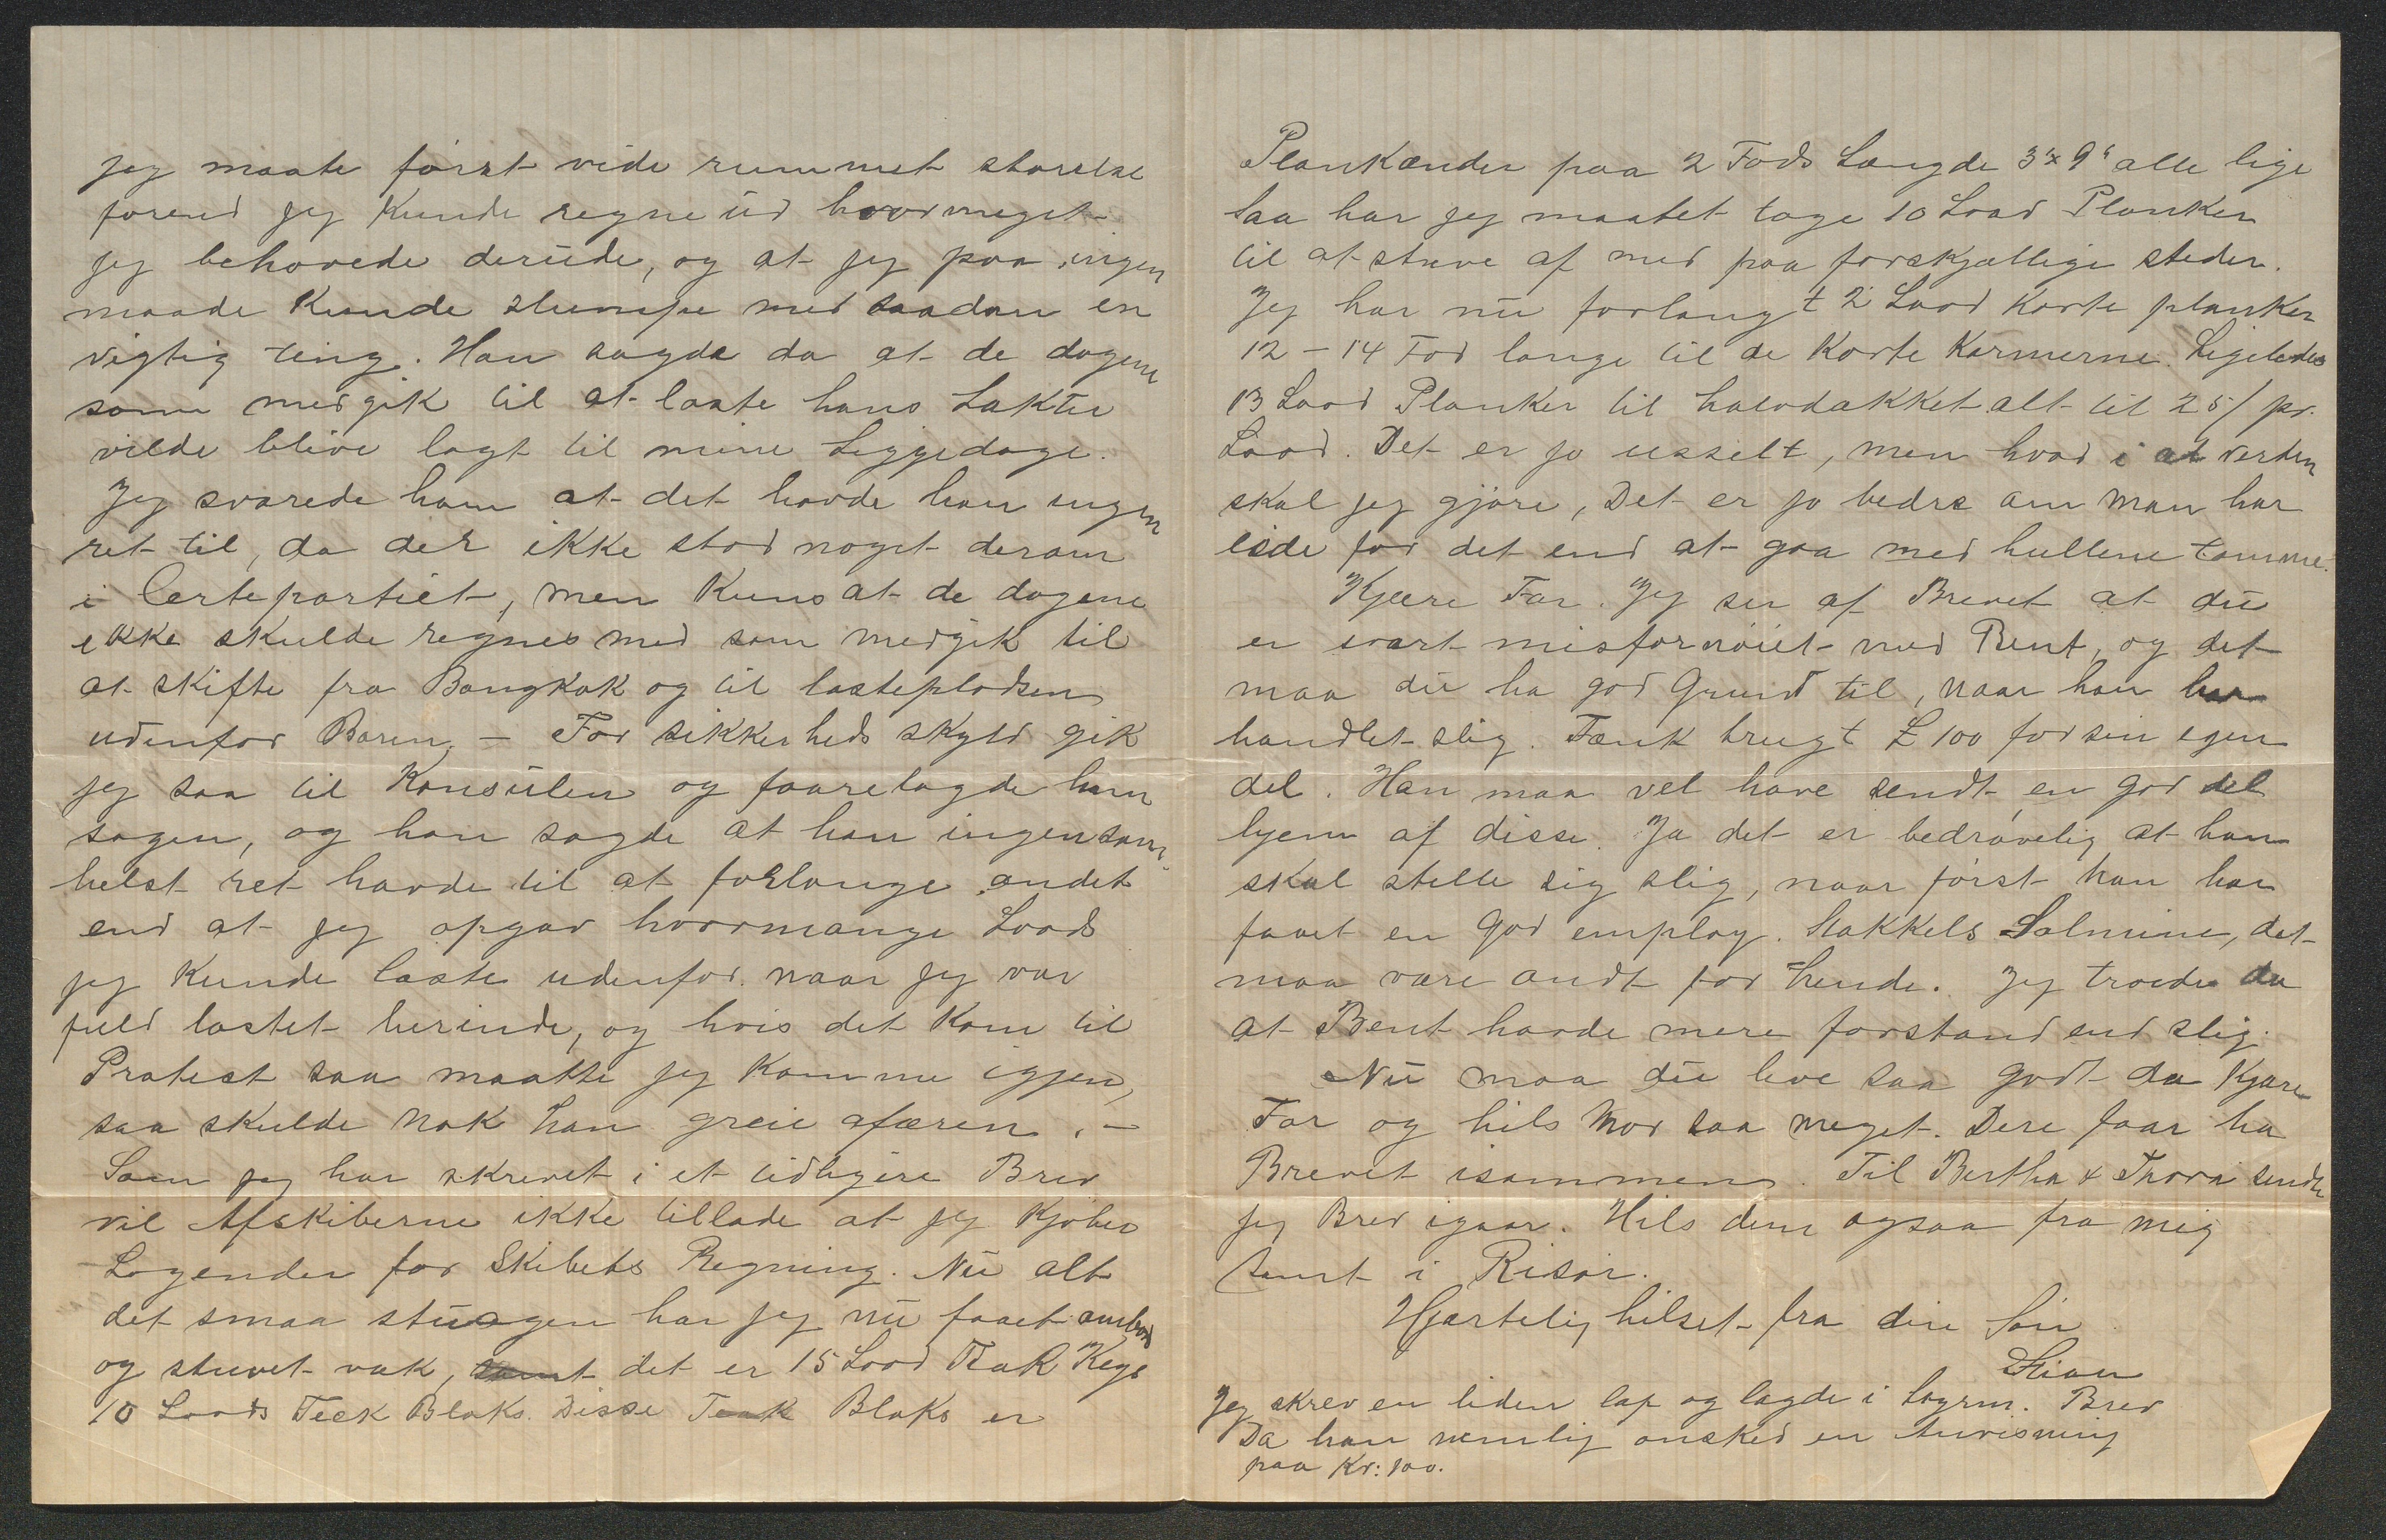 jeg maate først vide rummet størelse
førend jeg kunde regne ud hvormeget
jeg behøvede derude, og at jeg paa ingen
maade kunde slumpe med saadan en
vigtig ting. Han sagde da at de dagene
som medgik til at laste hans Lakter
vilde blive lagt til mine Liggedage.
Jeg svarede ham at det havde han ingen
ret til, da der ikke stod noget derom
i Certepartiet, men kuns at de dagene
ikke skulde regnes med som medgik til
at skifte fra Bangkok og til lastepladsen
udenfor Baren, – For sikkerheds skyld gik
jeg saa til Konsulen og foorelagde ham
sagen, og han sagde at han ingensom-
helst ret havde til at forlange andet
end at jeg opgav hvormange Loads
jeg kunde laste udenfor naar jeg var
fuld lastet herinde, og hvis det kom til
Protest saa maatte jeg komme igjen,
saa skulde nok han greie afæren. –
Som jeg har skrevet i et tidligere Brev
vil Afskiberne ikke tillade at jeg kjøber
Logender for Skibets Regning. Nu alt
det smaa stuegen har jeg nu faaet ombord
og stuvet væk, det er 15 Load Teak Keys
10 Loads Teek Bloks. Disse Teak Bloks er
Plankænder paa 2 Fods Længde 3"x9" alle lige
Saa har jeg maatet tage 10 Load Planker
til at stuve af med paa forskjællige steder.
Jeg har nu forlangt 2 Load korte planker
12 – 14 Fod lange til de korte Karmerne. Ligeledes
13 Load Planker til halvdækket alt til 25/ pr.
Load. Det er jo usselt, men hvad i al verden
skal jeg gjøre, Det er jo bedre om man har
lide for det end at gaa med hullene tomme.
Kjære Far. Jeg ser af Brevet at du
er svært misfornøiet med Bent, og det
maa du ha god Grund til, naar han har
handlet slig. Tænk brugt £ 100 for sin egen
del. Han maa vel have sendt en god del
hjem af disse. Ja det er bedrøvelig at han
skal stelle sig slig, naar først han har
faaet en god employ. Stakkels Salmine, det
maa være ondt for hende. Jeg troede da
at Bent havde mere forstand end slig.
Nu maa du leve saa godt da Kjære
Far og hils Mor saa meget. Dere faar ha
Brevet isammen. Til Bertha & Thora sendte
jeg Brev igaar. Hils dem ogsaa fra mig
samt i Risør.
Hjærtelig hilset fra din Søn
Jeg skrev en liden lap og lagde i Brev
Da han nemlig ønsked en Anvisning
paa Kr: 100.